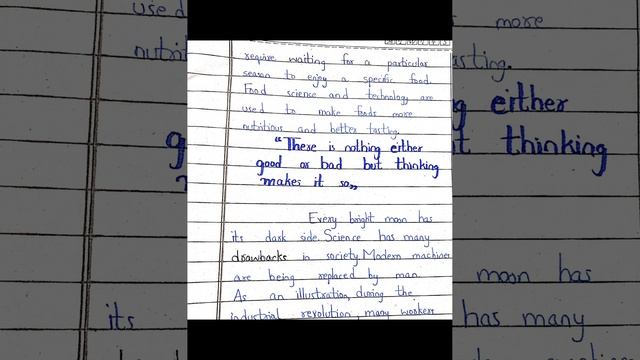 require waiting for a particular
season to enjoy a specific food.
Food science and technology are
used to make foods more
nutritious and better tasting.
"There is nothing either
good or bad but thinking
makes it so"
Every bright moon has
its dark side. Science has many
drawbacks in society. Modern machines
are being replaced by man.
As an illustration, during the
industrial revolution, many workers